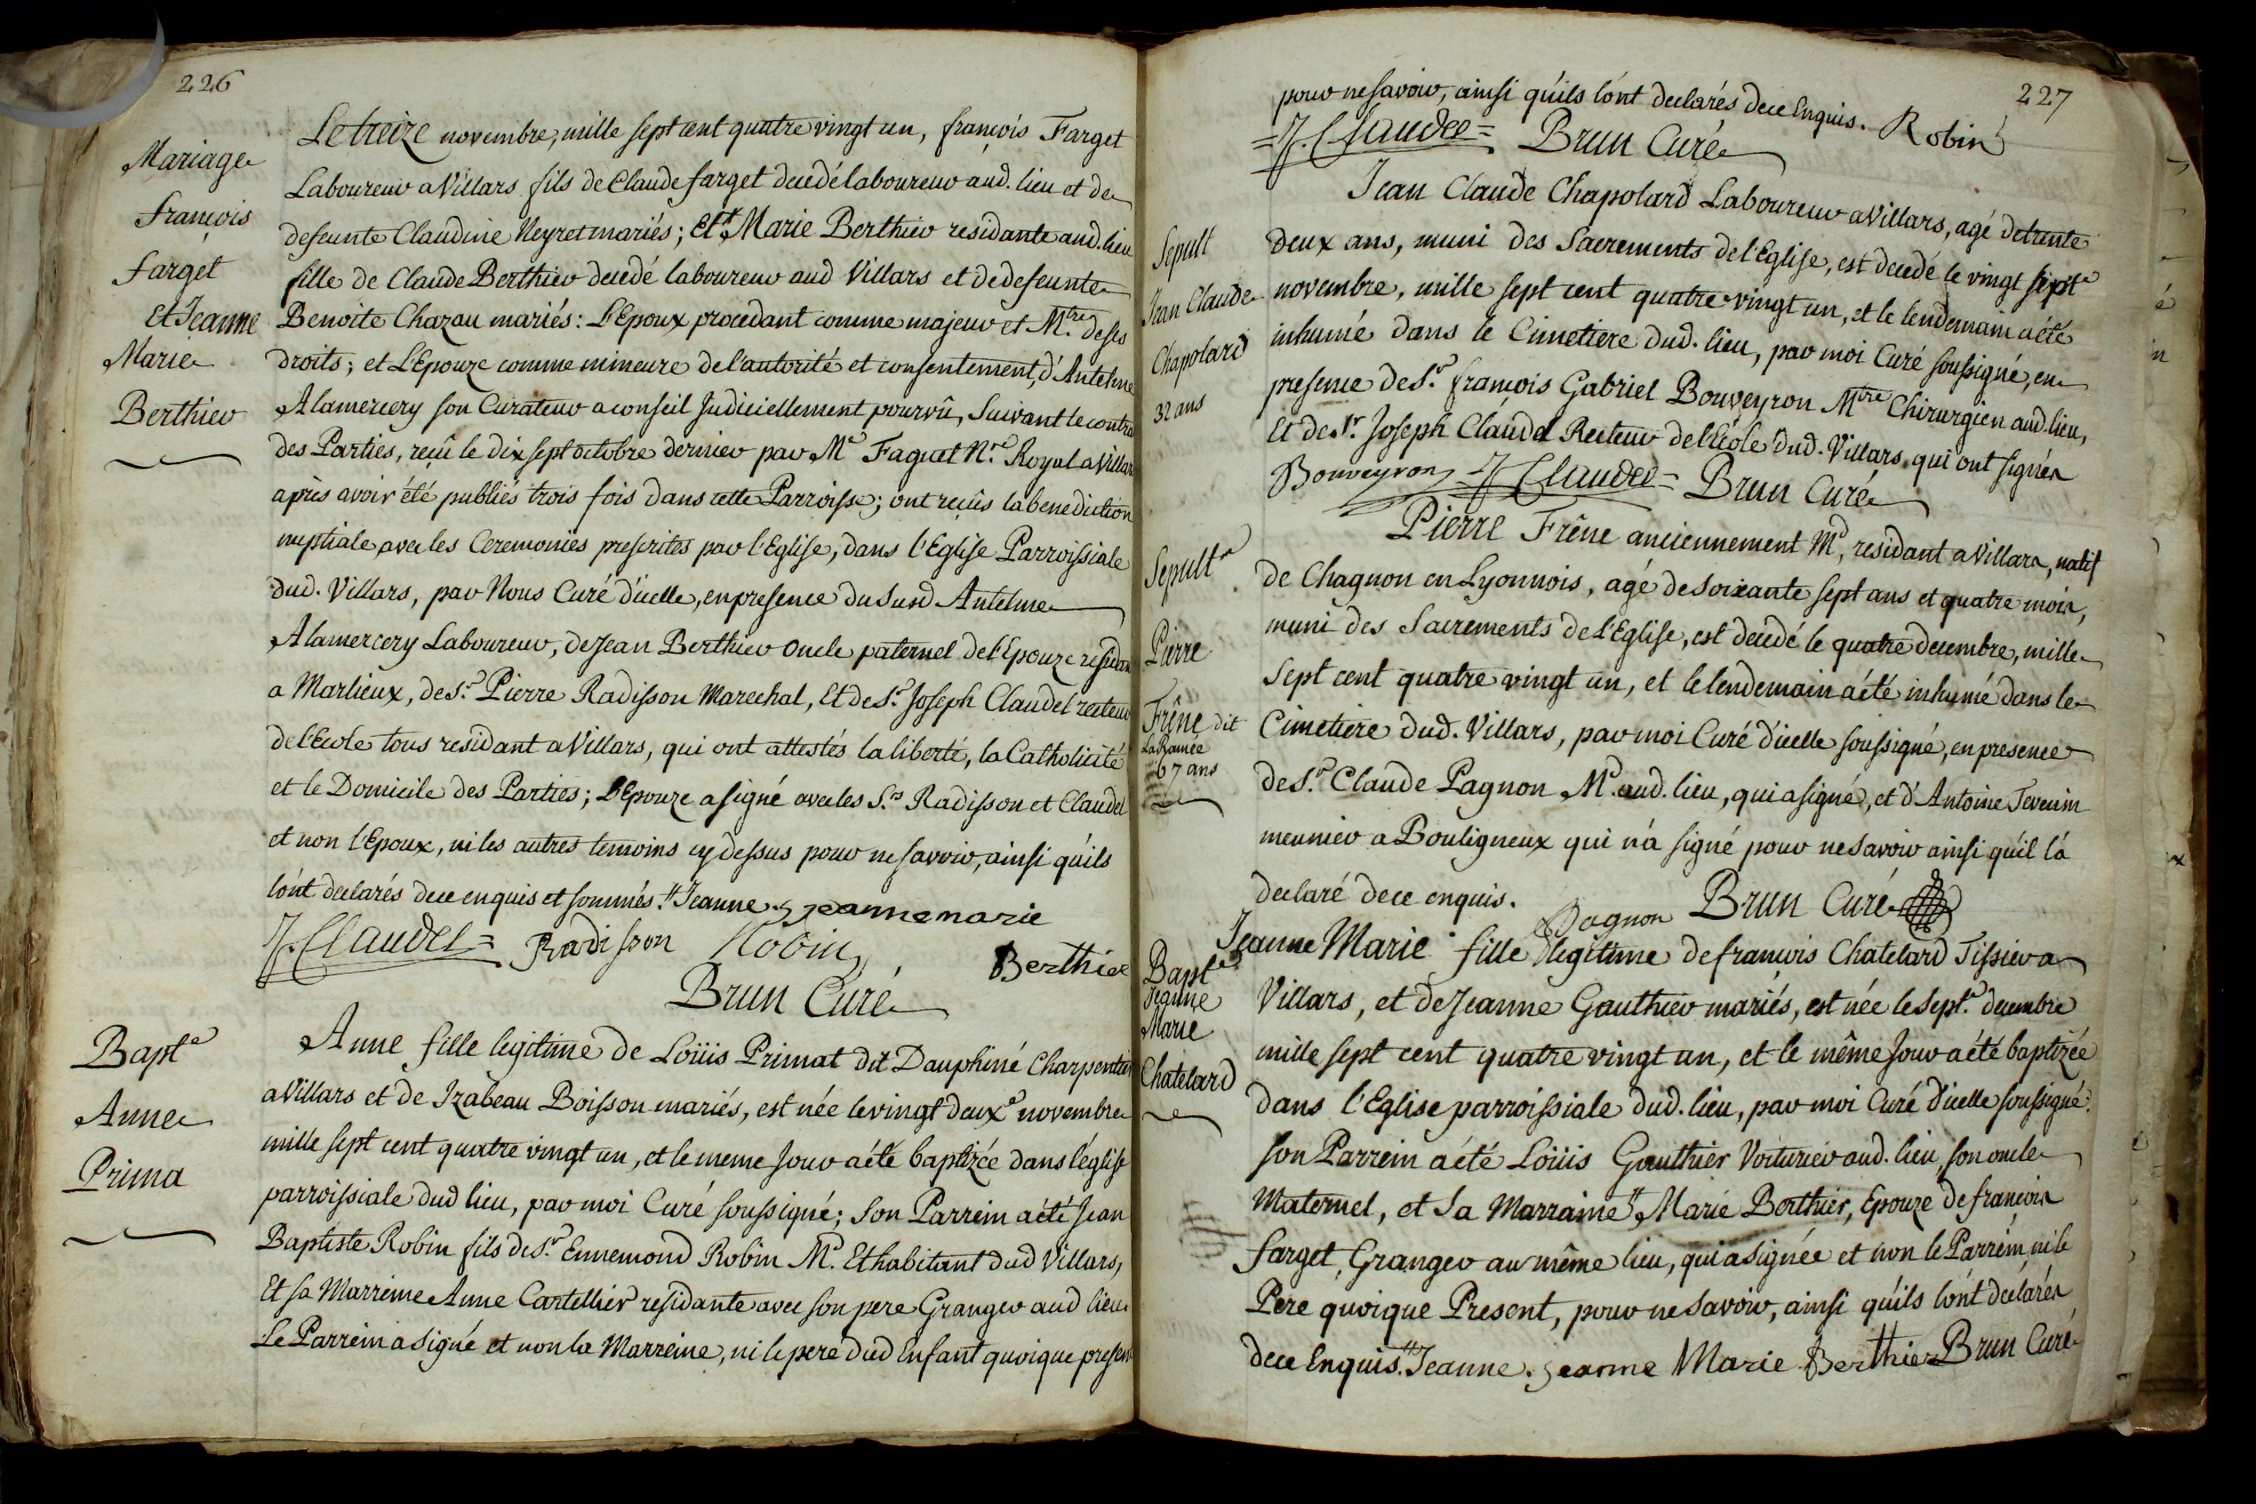 226
Mariage
françois
farget
Et Jeanne
Marie
Berthier
Le treize novembre, mille sept cent quatre vingt un, françois Farget
Laboureur a Villars fils de Claude farget decedé laboureur aud. lieu et de
defeunte Claudine Neyret mariés; Et " Marie Berthier residante aud. lieu
fille de Claude Berthier decedé laboureur aud Villars et de defeunte
Benoite Chazau mariés: L'Epoux procedant comme majeur et Mtre de ses
droits; et L'Epouze comme mineure de l'autorité et consentement, d'Antelme
Alamercery son Curateur a conseil Judiciellement pourvû, Suivant le contra
des Parties, reçû le dix sept octobre dernier par Me Faguet Nre Royal a Villar
après avoir été publiés trois fois dans cette Parroisse; ont reçûs la benediction
nuptiale avec les Ceremonies prescrites par l'Eglise, dans l'Eglise Parroissiale
dud. Villars, par Nous Curé d'icelle, en presence du Susd. Antelme
Alamercery Laboureur, de Jean Berthier oncle paternel de l'Epouze residan
a Marlieux, de Sr. Pierre Radisson Marechal, Et de Sr. Joseph Claudel recteur
de l'Ecole tous residant a Villars, qui ont attestés la liberté, la Catholicité
et le Domicile des Parties; L'Epouze a signé avec les Srs Radisson et Claudel
et non l'Epoux, ni les autres temoins cy dessus pour ne savoir, ainsi qu'ils
l'ont declarés de ce enquis et sommés. " Jeanne. Jeanne marie
J. Claudel = Radisson Robin Berthier
Brun Curé
Bapte
Anne
Prima
Anne fille legitime de Loüis Primat dit Dauphiné Charpentier
a Villars et de Izabeau Boisson mariés, est née le vingt deuxe novembre
mille sept cent quatre vingt un, et le meme Jour a été baptizée dans l'église
parroissiale dud lieu, par moi Curé soussigné; Son Parrein a été Jean
Baptiste Robin fils de Sr. Ennemond Robin Md. Et habitant dud Villars,
Et sa Marreine Anne Cartellier residante avec son pere Granger aud lieu.
Le Parrein a signé et non la Marreine, ni le pere dud Enfant quoique present
227
pour ne savoir, ainsi qu'ils l'ont declarés de ce Enquis. Robin
= J. Claudel = Brun Curé
Sepult
Jean Claude
Chapolard
32 ans
Jean Claude Chapolard Laboureur a Villars, agé de trente
deux ans, muni des Sacrements de l'Eglise, est decedé le vingt septe
novembre, mille sept cent quatre vingt un, et le lendemain a été
inhumé dans le Cimetiere dud. lieu, par moi Curé soussigné, en
presence de Sr. françois Gabriel Bouveyron Mtre Chirurgien aud. lieu,
Et de Sr. Joseph Claudel Recteur de l'Ecole dud. Villars, qui ont signés
Bouveyron = J. Claudel = Brun Curé
Sepulte
Pierre
Frêne dit
La Ramée
67 ans
Pierre Frêne anciennement Md, residant a Villars, natif
de Chagnon en Lyonnois, agé de soixante sept ans et quatre mois,
muni des Sacrements de L'Eglise, est decedé le quatre decembre, mille
Sept cent quatre vingt un, et le lendemain a été inhumé dans le
Cimetiere dud. Villars, par moi Curé d'icelle soussigné, en presence
de Sr. Claude Pagnon Md. aud. lieu, qui a signé, et d'Antoine Tevenin
meunier a Bouligneux qui n'a signé pour ne savoir ainsi qu'il l'a
declaré de ce enquis. Pagnon Brun Curé
Bapte
Jeanne
Marie
Chatelard
Jeanne Marie fille legitime de françois Chatelard Tissier a
Villars, et de Jeanne Gauthier mariés, est née le sept. decembre
mille sept cent quatre vingt un, et le même Jour a été baptizée
dans l'Eglise parroissiale dud. lieu, par moi Curé d'icelle soussigné.
son Parrein a été Loüis Gauthier Voiturier aud. lieu, son oncle
Maternel, et sa Marraine " Marie Berthier, Epouze de françois
farget, Granger au même lieu, qui a signée et non le Parrein ni le
Pere quoique Present, pour ne savoir, ainsi qu'ils l'ont déclarés
de ce Enquis. " Jeanne. Jeanne Marie Berthier Brun Curé